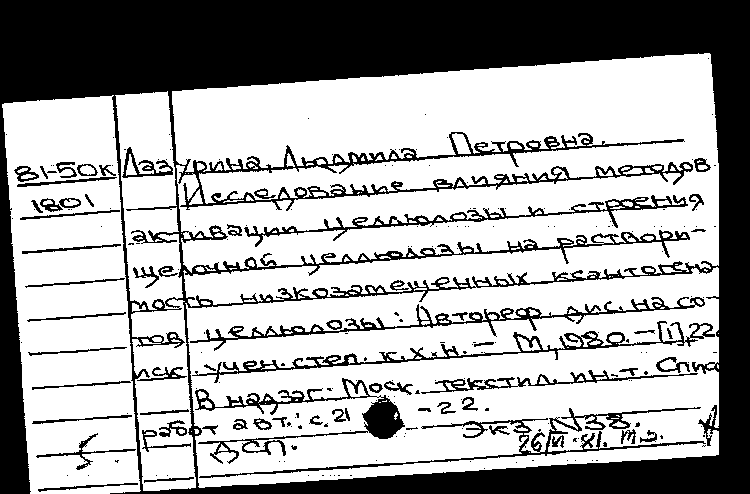 81-50к Лазурина, Людмила Петровна.
1801 Исследование влияния методов
активации целлюлозы и строения
щелочной целлюлозы на раствори-
мость низкозамещенных ксантогена-
тов целлюлозы: Автореф. дис. на со-
иск. учен. степ. к.х.н. - М., 1980. - [1], 22
В надзаг: Моск. текстил. ин-т. Спис
работ авт.: с. 21 - 22.
ДСП. Экз. N38.
26/VI-81. т.з.